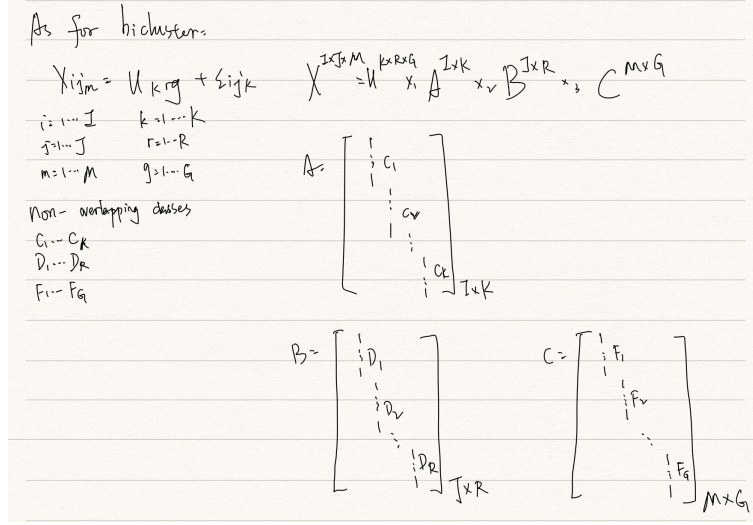 As for bicluster:
Xijm = Ukrg + εijk
X^{I×J×M} = U^{K×R×G} ×₁ A^{I×K} ×₂ B^{J×R} ×₃ C^{M×G}
i=1...I k=1...K
j=1...J r=1...R
m=1...M g=1...G
non-overlapping classes
C₁...C_K
D₁...D_R
F₁...F_G
A= [ 1 ⋮ 1 C₁ 1 ⋮ 1 C₂ ⋱ 1 ⋮ 1 C_K ] I×K
B= [ 1 ⋮ 1 D₁ 1 ⋮ 1 D₂ ⋱ 1 ⋮ 1 D_R ] J×R
C= [ 1 ⋮ 1 F₁ 1 ⋮ 1 F₂ ⋱ 1 ⋮ 1 F_G ] M×G